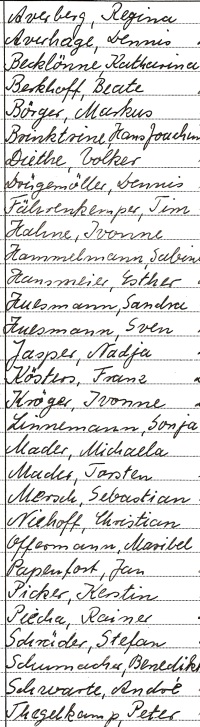 Averberg, Regina
Averhage, Dennis
Becklönne, Katharina
Berkhoff, Beate
Börger, Markus
Brinktrine, Hans Joachim
Diethe, Volker
Drügemöller, Dennis
Fährenkemper, Tim
Hahne, Ivonne
Hammelmann, Sabine
Hansmeier, Esther
Huesmann, Sandra
Huesmann, Sven
Jasper, Nadja
Kösters, Franz
Kröger, Ivonne
Linnemann, Sonja
Mader, Michaela
Mader, Torsten
Mersch, Sebastian
Niehoff, Christian
Offermann, Maribel
Papenfort, Jan
Picker, Kerstin
Piecha, Rainer
Schröder, Stefan
Schumacher, Benedikt
Schwarte, André
Thegelkamp, Peter